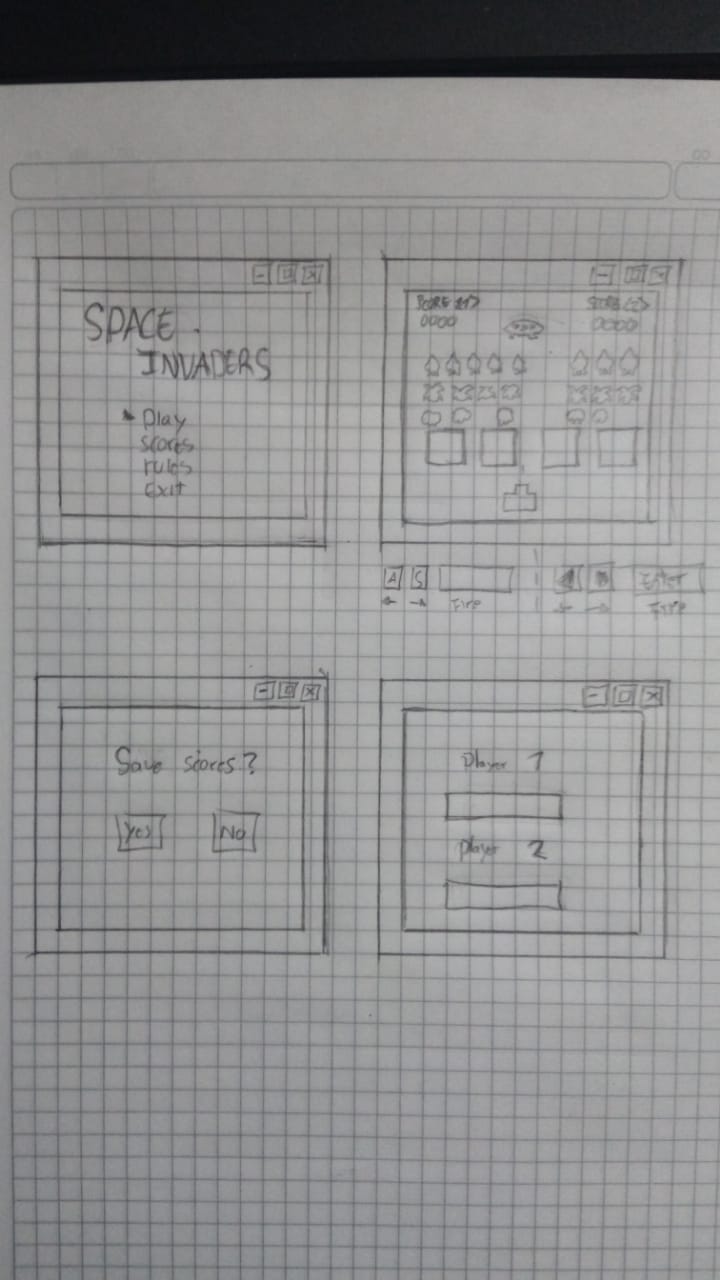 SPACE
INVADERS
Play
scores
rules
Exit
SCORE <1> SCORE <2>
0000 0000
A S Enter
Fire Fire
Save scores?
Yes No
Player 1
player 2